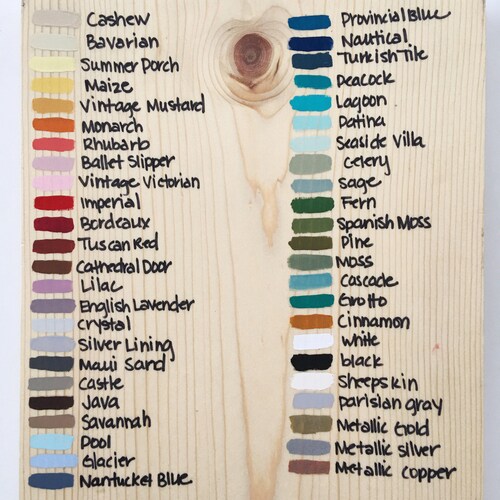 Cashew
Bavarian
Summer Porch
Maize
Vintage Mustard
Monarch
Rhubarb
Ballet Slipper
Vintage Victorian
Imperial
Bordeaux
Tuscan Red
Cathedral Door
Lilac
English Lavender
Crystal
Silver Lining
Maui Sand
Castle
Java
Savannah
Pool
Glacier
Nantucket Blue
Provincial Blue
Nautical
Turkish Tile
Peacock
Lagoon
Patina
Seaside Villa
Celery
Sage
Fern
Spanish Moss
Pine
Moss
Cascade
Grotto
Cinnamon
White
black
Sheepskin
Parisian gray
Metallic Gold
Metallic Silver
Metallic copper